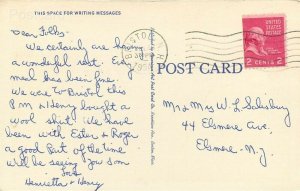 THIS SPACE FOR WRITING MESSAGES
Dear Folks:
We certainly are having
a wonderful rest. Every
meal has been fine.
We went to Bristol this
P.M & Henry bought a
wool shirt. We have
been with Ester & Roger
a good part of the time
will be seeing you soon
Love
Henrietta & Henry
BRISTOL, N.H.
POST CARD
2 CENTS 2
Mr. & Mrs W L Salesbury
44 Elsmere Ave,
Elsmere. N.J